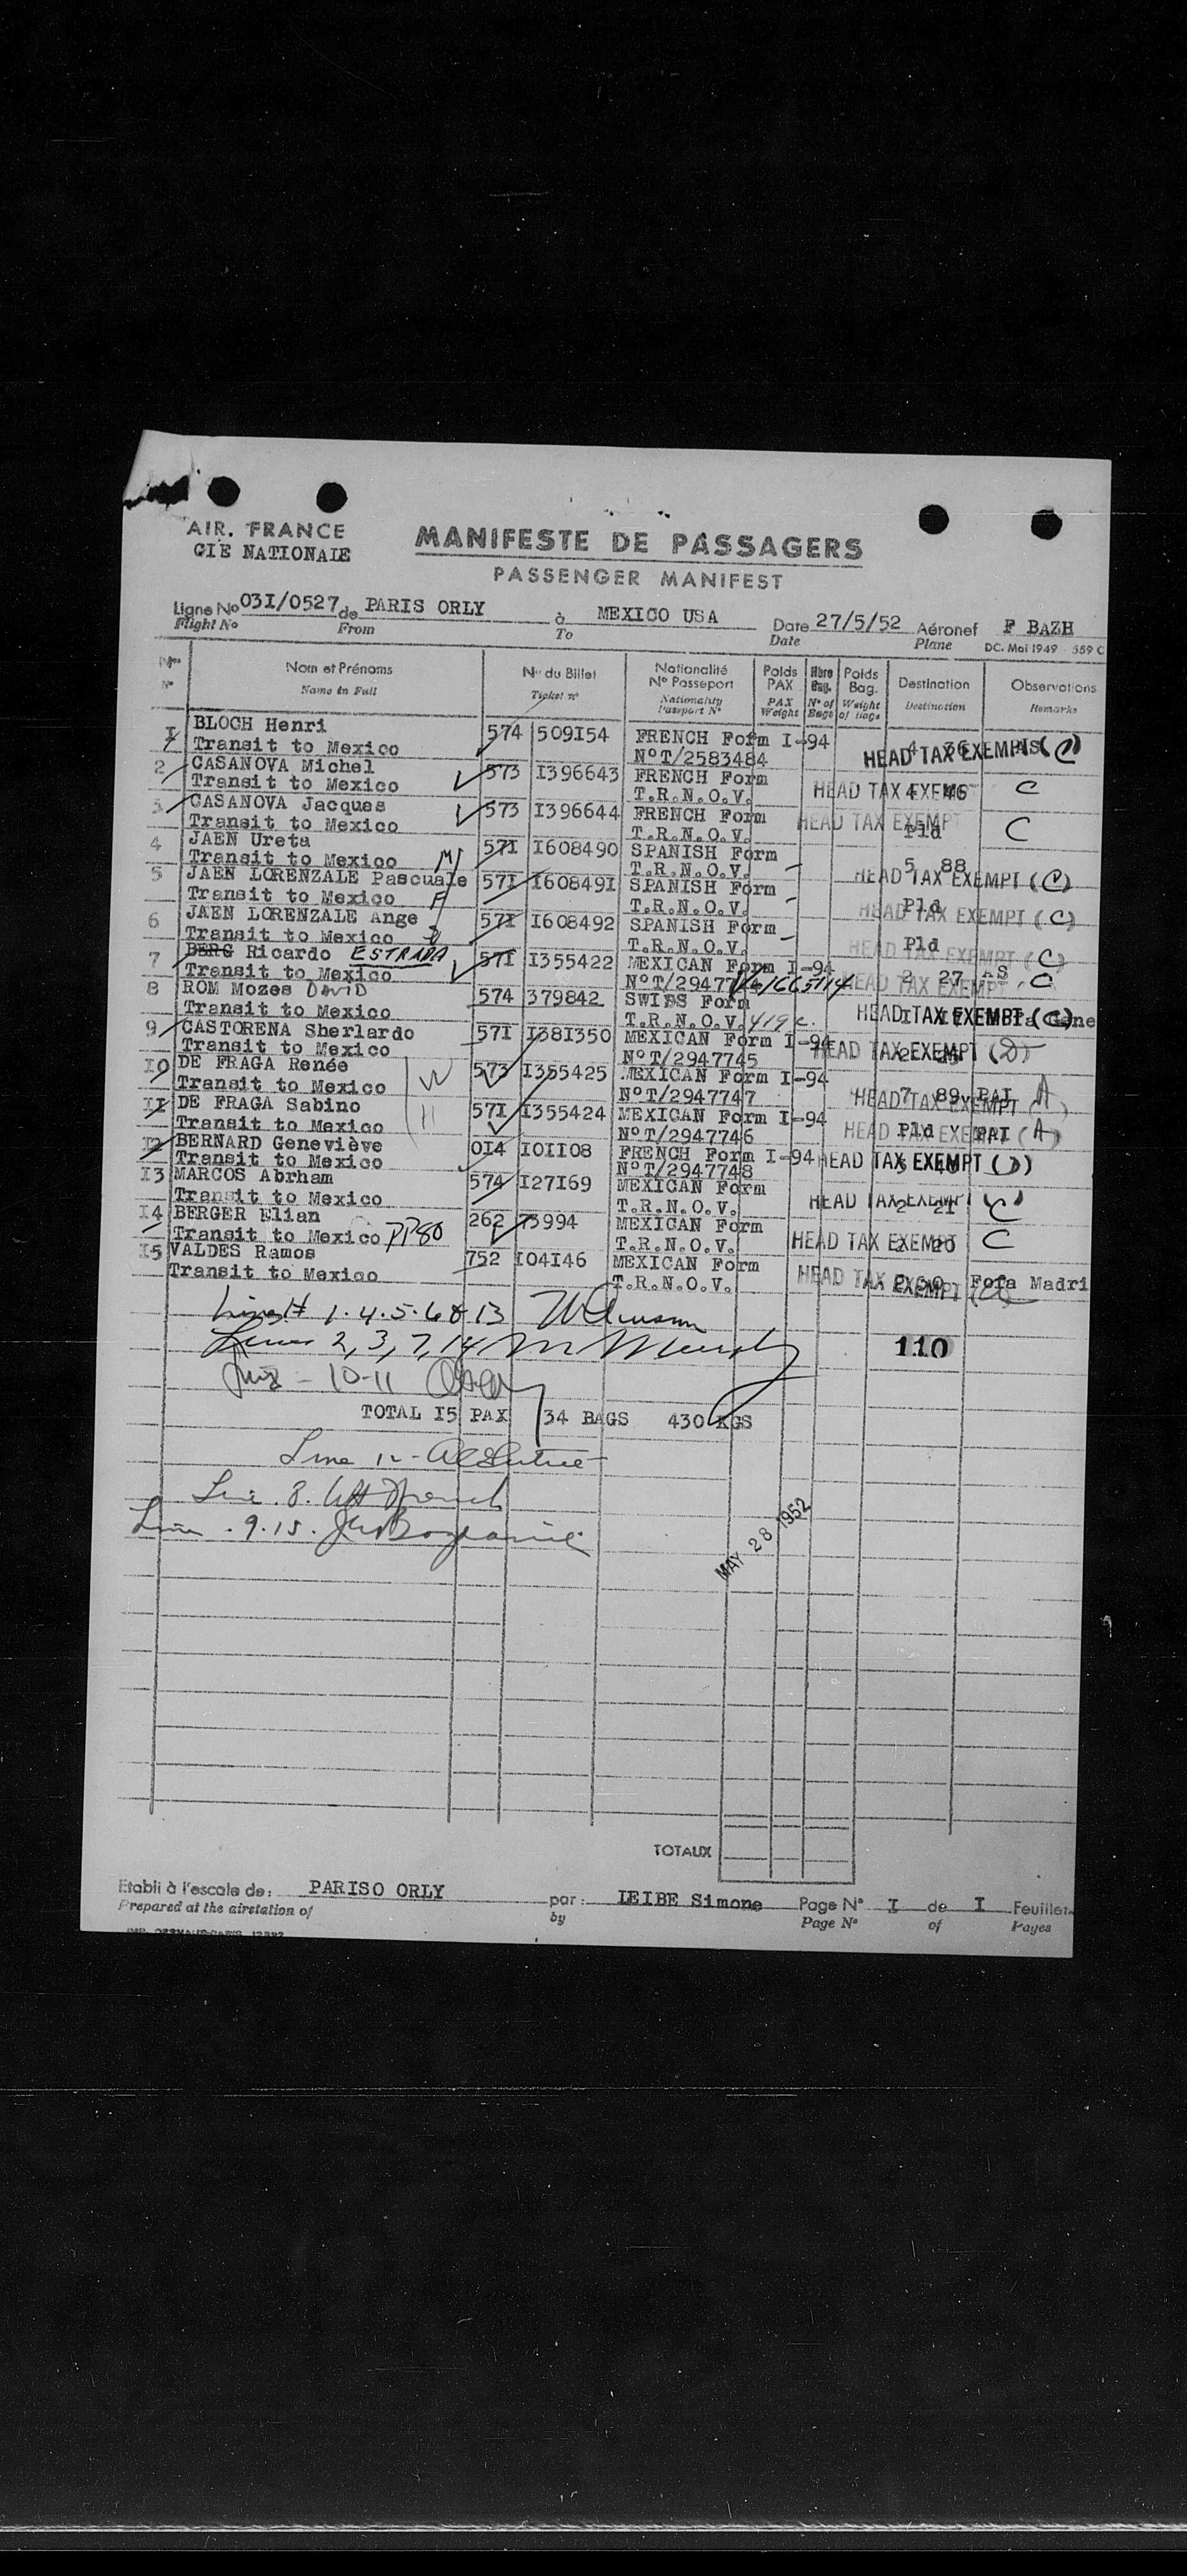 AIR. FRANCE
CIE NATIONALE
MANIFESTE DE PASSAGERS
PASSENGER MANIFEST
Ligne No 03I/0527 de PARIS ORLY à MEXICO USA Date 27/5/52 Aéronef F BAZH
Flight No From To Date Plane DC. Mai 1949 559 C
Nos Nom et Prénoms No du Billet Nationalité Poids Nbre Poids Destination Observations
No Name in Full Ticket no No Passeport PAX Bag. Bag. Destination Remarks
Nationality PAX No of Weight
Passport No Weight Bags of Bags
I BLOCH Henri 574 509I54 FRENCH Form I-94
Transit to Mexico No T/2583484 HEAD TAX EXEMPT (C)
2 CASANOVA Michel 573 I396643 FRENCH Form
Transit to Mexico T.R.N.O.V. HEAD TAX EXEMPT 4 46 C
3 CASANOVA Jacques 573 I396644 FRENCH Form HEAD TAX EXEMPT
Transit to Mexico T.R.N.O.V. Pld C
4 JAEN Ureta 57I I608490 SPANISH Form
Transit to Mexico M T.R.N.O.V. 5 88
5 JAEN LORENZALE Pascuale 57I I60849I SPANISH Form HEAD TAX EXEMPT (C)
Transit to Mexico F T.R.N.O.V. Pld
6 JAEN LORENZALE Ange 57I I608492 SPANISH Form HEAD TAX EXEMPT (C)
Transit to Mexico T.R.N.O.V. Pld
7 BERG Ricardo ESTRADA 57I I355422 MEXICAN Form I-94 HEAD TAX EXEMPT (C)
Transit to Mexico No T/29477 2 27 AS
8 ROM Mozes DAVID 574 379842 SWISS Form HEAD TAX EXEMPT C
Transit to Mexico T.R.N.O.V. HEAD TAX EXEMPT (C)
9 CASTORENA Sherlardo 57I I38I350 MEXICAN Form I-94
Transit to Mexico No T/2947745 HEAD TAX EXEMPT (D)
IO DE FRAGA Renée 573 I355425 MEXICAN Form I-94
Transit to Mexico No T/2947747 7 89 PAI A
II DE FRAGA Sabino 57I I355424 MEXICAN Form I-94 HEAD TAX EXEMPT
Transit to Mexico No T/2947746 HEAD TAX EXEMPT Pld PAI (A)
I2 BERNARD Geneviève 0I4 IOII08 FRENCH Form I-94 HEAD TAX EXEMPT (D)
Transit to Mexico No T/2947748
I3 MARCOS Abrham 574 I27I69 MEXICAN Form
Transit to Mexico T.R.N.O.V. HEAD TAX EXEMPT 2 2I C
I4 BERGER Elian 262 73994 MEXICAN Form
Transit to Mexico PP80 T.R.N.O.V. HEAD TAX EXEMPT 20 C
I5 VALDES Ramos 752 I04I46 MEXICAN Form
Transit to Mexico T.R.N.O.V. HEAD TAX EXEMPT Fofa Madri
Line # 1.4.5.6 & 13
Lines 2, 3, 7, 14
110
10-11
TOTAL I5 PAX 34 BAGS 430 KGS
Line 12 -
Line 8.
Line 9.15.
MAY 28 1952
TOTAUX
Etabli à l'escale de: PARISO ORLY par: LEIBE Simone Page No I de I Feuillets
Prepared at the airstation of by Page No of Pages